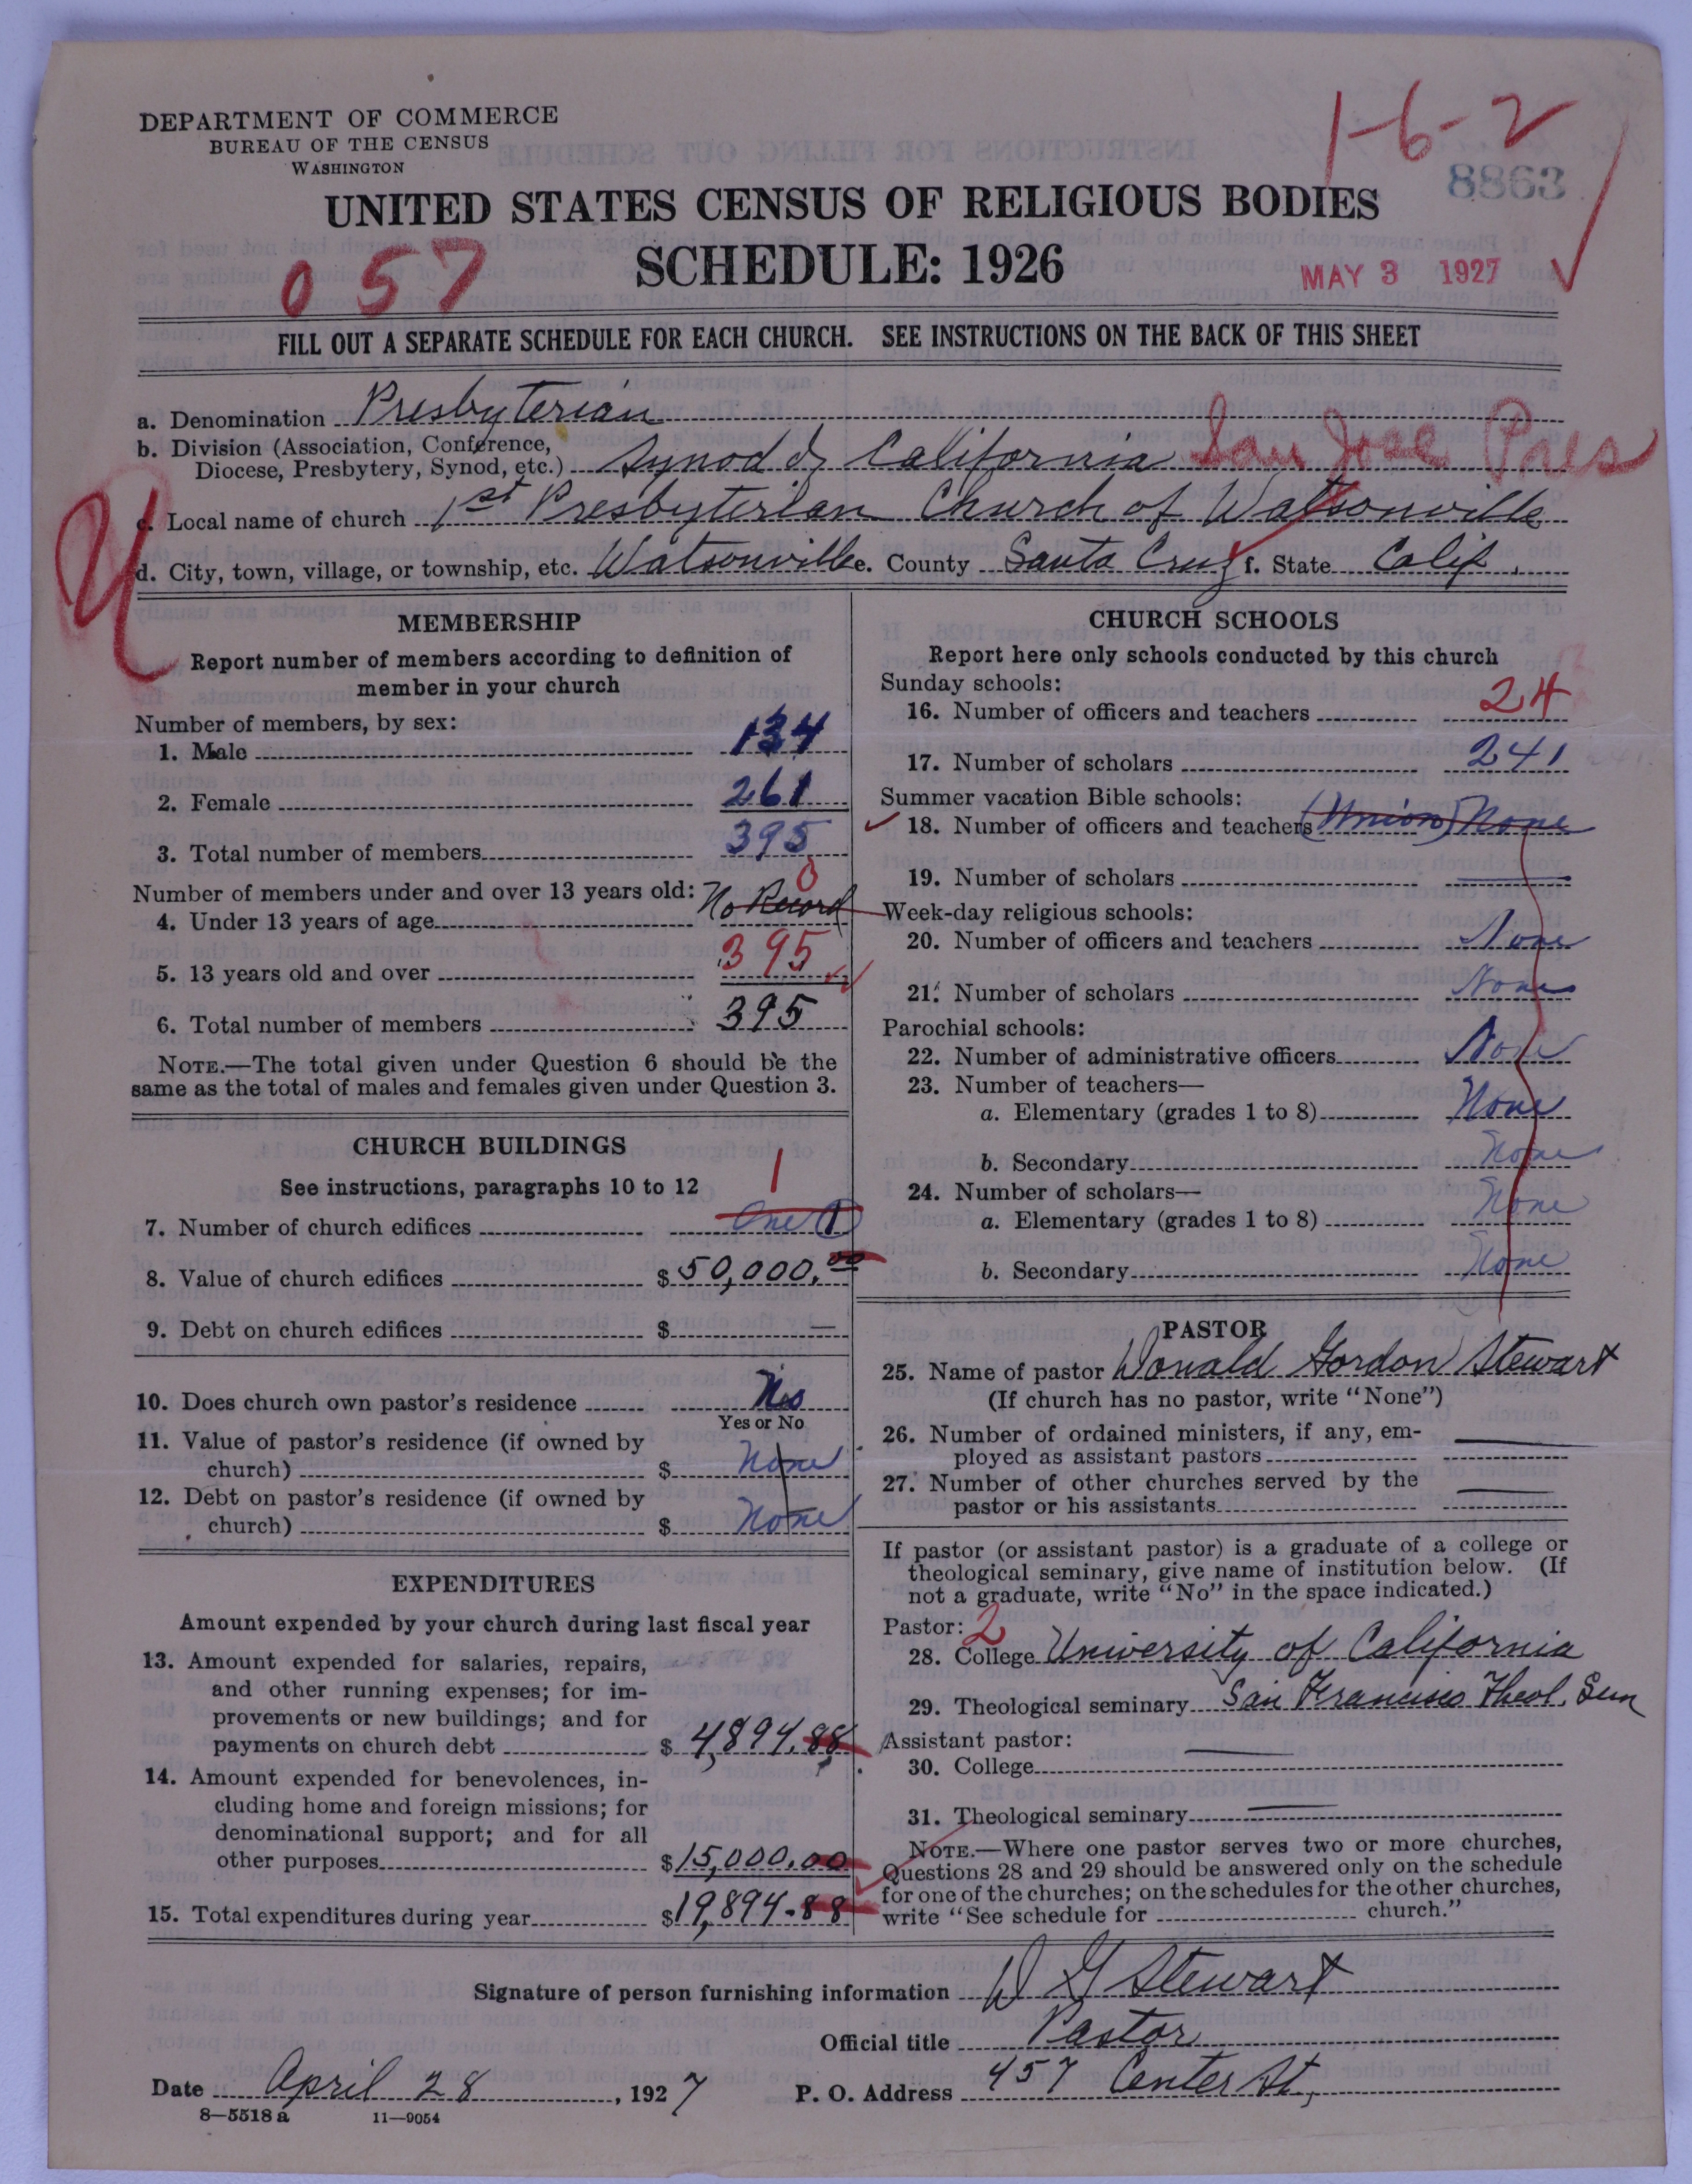 DEPARTMENT OF COMMERCE
BUREAU OF THE CENSUS
WASHINGTON
1-6-2
8863
UNITED STATES CENSUS OF RELIGIOUS BODIES
057
SCHEDULE: 1926
MAY 3 1927
FILL OUT A SEPARATE SCHEDULE FOR EACH CHURCH. SEE INSTRUCTIONS ON THE BACK OF THIS SHEET
a. Denomination Presbyterian
b. Division (Association, Conference,
Diocese, Presbytery, Synod, etc.) Synod of California San Jose Pres
c. Local name of church 1st Presbyterian Church of Watsonville
d. City, town, village, or township, etc. Watsonville e. County Santa Cruz f. State Calif.
MEMBERSHIP
Report number of members according to definition of
member in your church
Number of members, by sex:
1. Male 134
2. Female 261
3. Total number of members 395
Number of members under and over 13 years old: 0
4. Under 13 years of age No Record
5. 13 years old and over 395
6. Total number of members 395
NOTE.—The total given under Question 6 should be the
same as the total of males and females given under Question 3.
CHURCH BUILDINGS
See instructions, paragraphs 10 to 12 1
7. Number of church edifices One (1)
8. Value of church edifices $ 50,000.00
9. Debt on church edifices $ —
10. Does church own pastor's residence
Yes or No
11. Value of pastor's residence (if owned by
church) $ None
12. Debt on pastor's residence (if owned by
church) $ None
EXPENDITURES
Amount expended by your church during last fiscal year
13. Amount expended for salaries, repairs,
and other running expenses; for im-
provements or new buildings; and for
payments on church debt $ 4,894.88
14. Amount expended for benevolences, in-
cluding home and foreign missions; for
denominational support; and for all
other purposes $ 15,000.00
15. Total expenditures during year $ 19,894.88
CHURCH SCHOOLS
Report here only schools conducted by this church
Sunday schools:
16. Number of officers and teachers 24
17. Number of scholars 241
Summer vacation Bible schools:
18. Number of officers and teachers (Union) None
19. Number of scholars —
Week-day religious schools:
20. Number of officers and teachers None
21. Number of scholars None
Parochial schools:
22. Number of administrative officers None
23. Number of teachers—
a. Elementary (grades 1 to 8) None
b. Secondary None
24. Number of scholars—
a. Elementary (grades 1 to 8) None
b. Secondary None
PASTOR
25. Name of pastor Donald Gordon Stewart
(If church has no pastor, write "None")
26. Number of ordained ministers, if any, em-
ployed as assistant pastors —
27. Number of other churches served by the
pastor or his assistants —
If pastor (or assistant pastor) is a graduate of a college or
theological seminary, give name of institution below. (If
not a graduate, write "No" in the space indicated.)
Pastor: 2
28. College University of California
29. Theological seminary San Francisco Theol. Sem
Assistant pastor:
30. College —
31. Theological seminary —
NOTE.—Where one pastor serves two or more churches,
Questions 28 and 29 should be answered only on the schedule
for one of the churches; on the schedules for the other churches,
write "See schedule for church."
Signature of person furnishing information D G Stewart
Official title Pastor
Date April 28, 1927 P. O. Address 457 Center St,
8—5518 a 11—9054